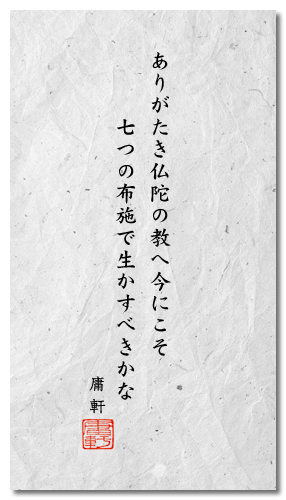 ありがたき仏陀の教へ今にこそ
七つの布施で生かすべきかな
庸軒
庸軒